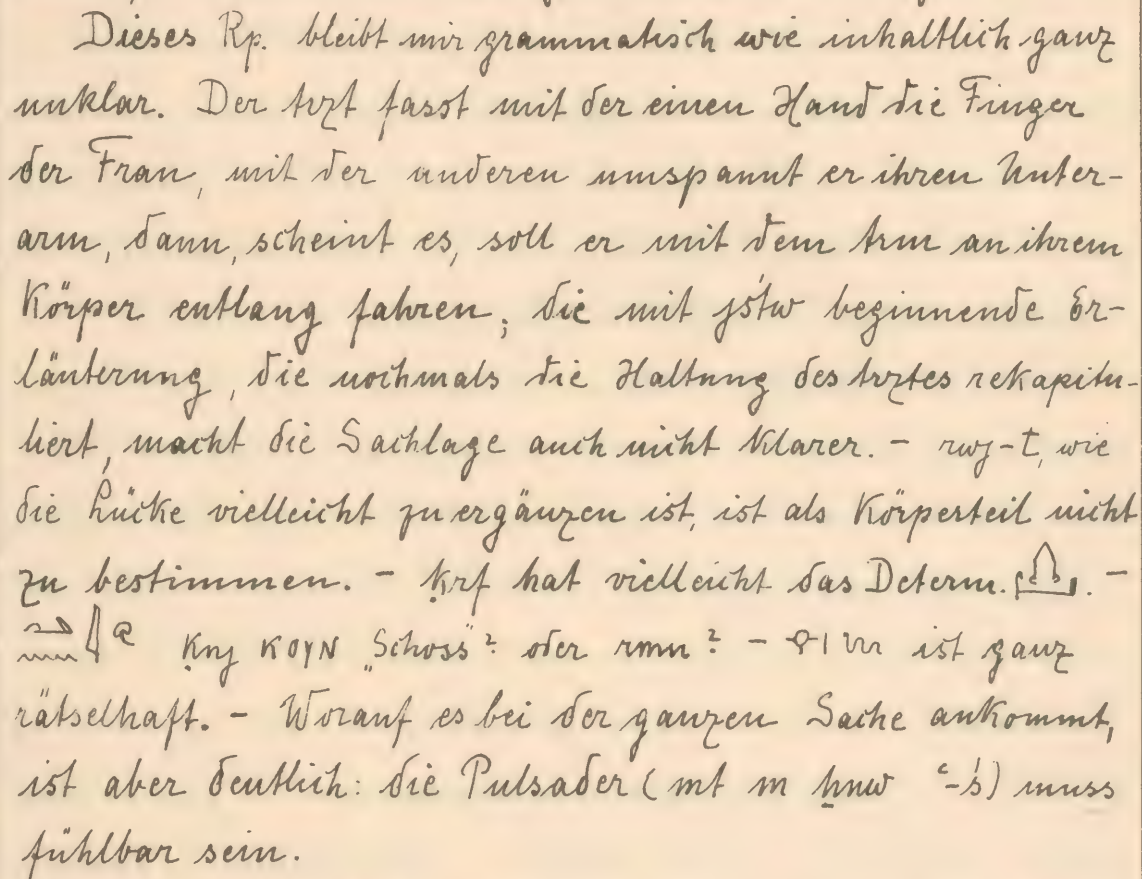 Dieses Rp. bleibt mir grammatisch wie inhaltlich ganz
unklar. Der Arzt fasst mit der einen Hand die Finger
der Frau, mit der anderen umspannt er ihren Unter-
arm, dann, scheint es, soll er mit dem Arm an ihrem
Körper entlang fahren; die mit jśtw beginnende Er-
läuterung, die nochmals die Haltung des Arztes rekapitu-
liert, macht die Sachlage auch nicht klarer. – rwj-t, wie
die Lücke vielleicht zu ergänzen ist, ist als Körperteil nicht
zu bestimmen. – ḳrf hat vielleicht das Determ. . –
ḳnj ⲕⲟⲩⲛ „Schoss"? oder rmn? – ist ganz
rätselhaft. – Worauf es bei der ganzen Sache ankommt,
ist aber deutlich: die Pulsader (mt m ẖnw ꜥ-ś) muss
fühlbar sein.